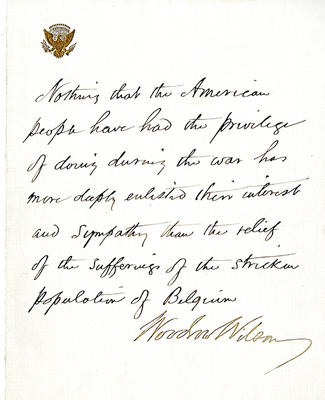 Nothing that the American
people have had the privilege
of doing during the war has
more deeply enlisted their interest
and sympathy than the relief
of the sufferings of the stricken
population of Belgium
Woodrow Wilson